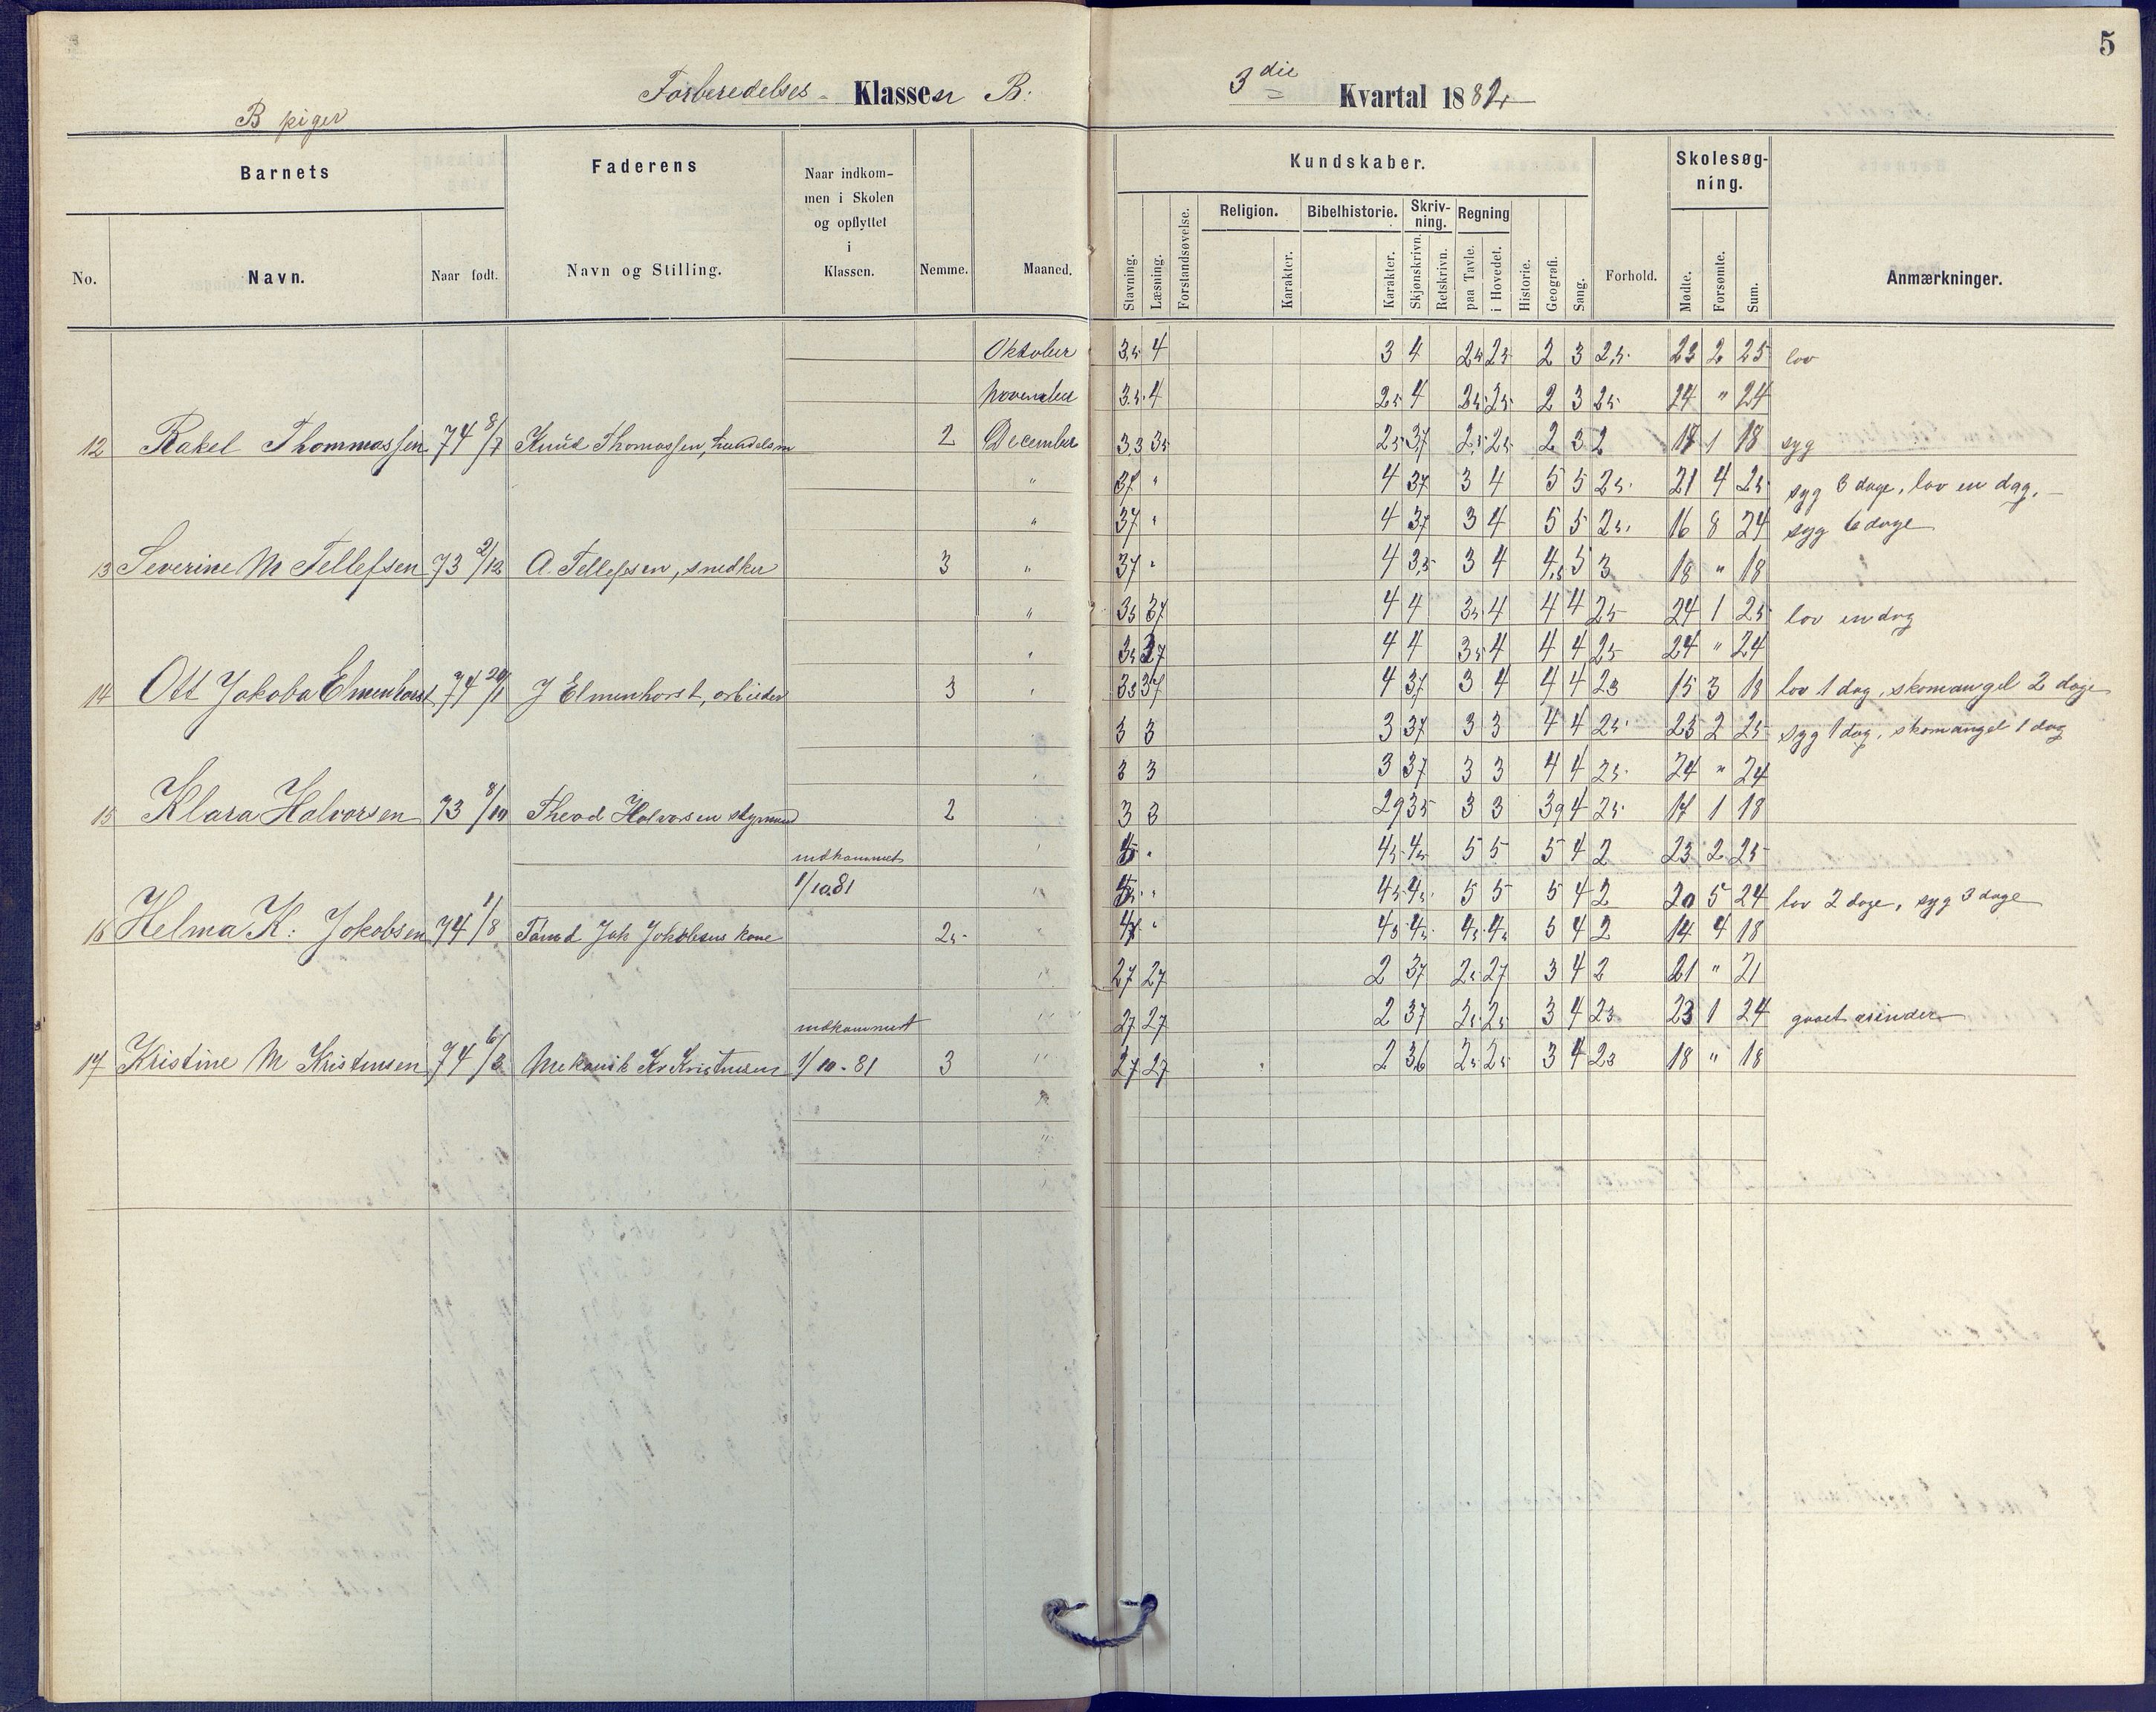 5
Forberedelses- Klassen B.
3die Kvartal 1882
B piger
Barnets
Faderens
Naar indkom-
men i Skolen
og opflyttet
i
Klassen.
Nemme.
Maaned.
No.
Navn.
Naar født.
Navn og Stilling.
Kundskaber.
Skolesøg-
ning.
Religion.
Bibelhistorie.
Skriv-
ning.
Regning
Stavning.
Læsning.
Forstandsøvelse.
Karakter.
Karakter.
Skjønskrivn.
Retskrivn.
paa Tavle.
i Hovedet.
Historie.
Geografi.
Sang.
Forhold.
Mødte.
Forsømte.
Sum.
Anmærkninger.
Oktober 3,5 4 3 4 25 25 2 3 2,5 23 2 25 lov
November 3.5 4 25 4 25 25 2 3 25 24 " 24
12 Rakel Thommassen 74 8/7 Knud Thomassen, handelsm 2 December 33 35 25 37 25 25 2 3 2 18 1 18 syg
" 37 " 4 37 3 4 5 5 25 21 4 25 syg 3 dage, lov en dag,
" 37 " 4 37 3 4 5 5 25 16 8 24 syg 6 dage
13 Severine M Tellefsen 73 2/12 A. Tellefsen, snedker 3 " 37 " 4 3,5 3 4 4,5 5 3 18 " 18
" 35 37 4 4 35 4 4 4 25 24 1 25 lov en dag
" 35 37 4 4 35 4 4 4 25 24 " 24
14 Ott Jakoba Elmenhorst 74 20/1 J Elmenhorst, arbieder 3 " 35 37 4 37 3 4 4 4 23 15 3 18 lov 1 dag, skomangel 2 dage
3 3 3 37 3 3 4 4 25 23 2 25 syg 1 dag, skomangel 1 dag
" 3 3 3 37 3 3 4 4 25 24 " 24
15 Klara Halvorsen 73 8/10 Theod Halvorsen styrmand 2 " 3 3 29 35 3 3 39 4 25 17 1 18
indkommet " " 45 45 5 5 5 4 2 23 2 25
1/10.81 " " 45 45 5 5 5 4 2 20 5 24 lov 2 dage, syg 3 dage
16 Helma K: Jakobsen 74 1/8 Jak Jakobsens kone 25 " 47 " 45 45 45 45 5 4 2 14 4 18
" 27 27 2 37 25 27 3 4 2 21 " 21
indkommet " 27 27 2 37 25 25 3 4 23 23 1 24 gaaet ærinder
17 Kristine M Kristensen 74 6/3 Mekanik Kr Kristensen 1/10-81 3 " 27 27 2 36 25 25 3 4 23 18 " 18
"
"